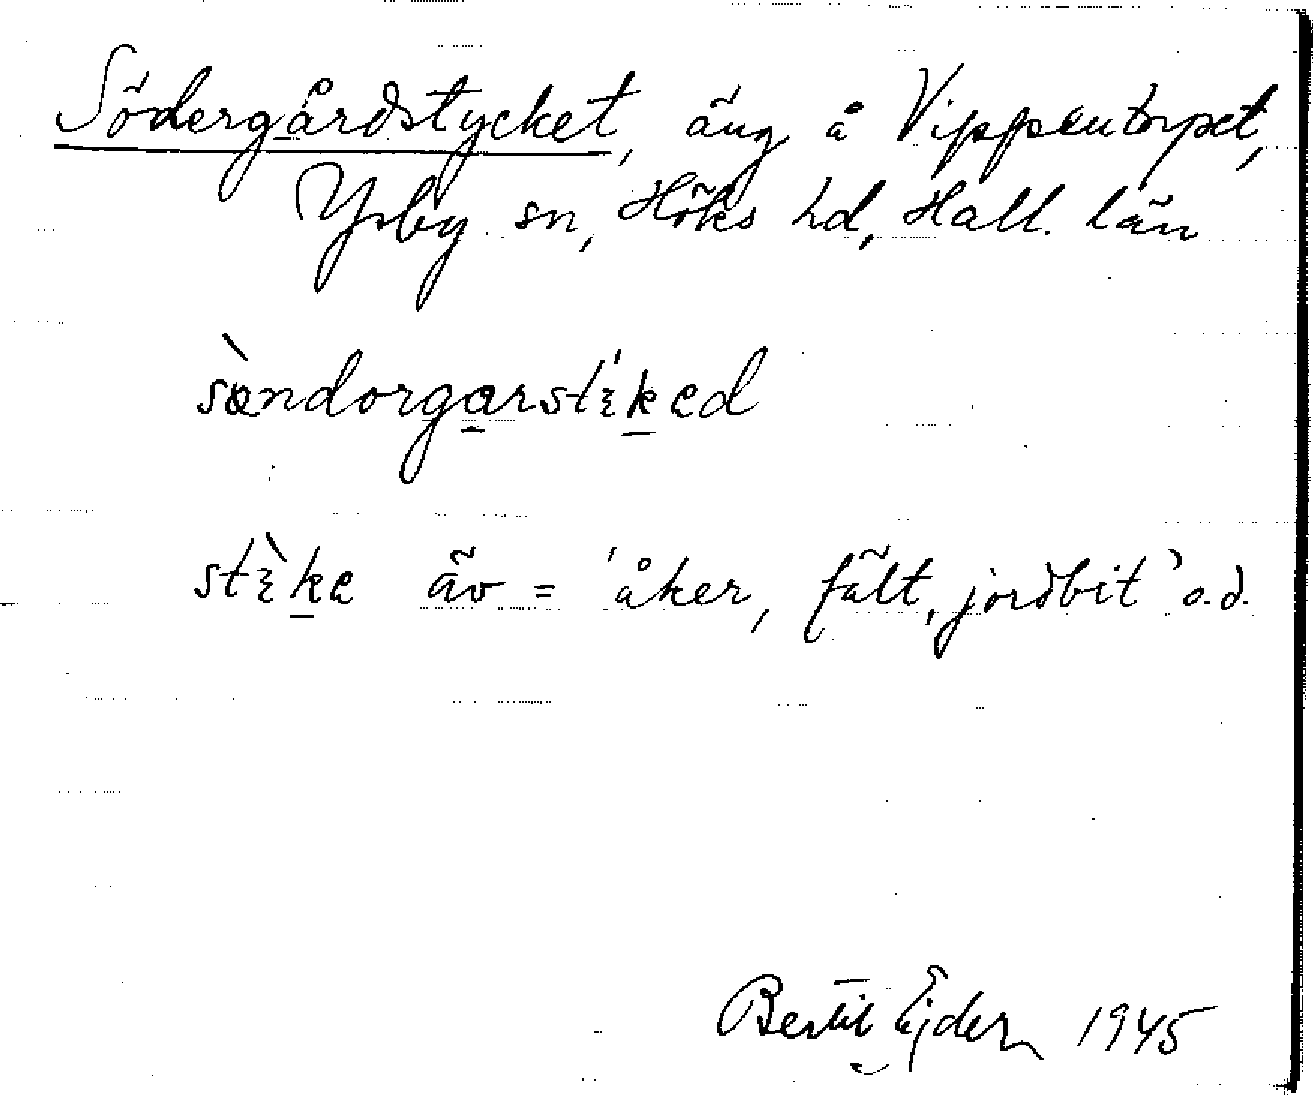 Södergårdstycket, äng å Vippentorpet,
Ysby sn, Höks hd, Hall. län
sèndorgarstiked
stìke äv = 'åker, fält, jordbit' o.d.
Bertil Ejder 1945